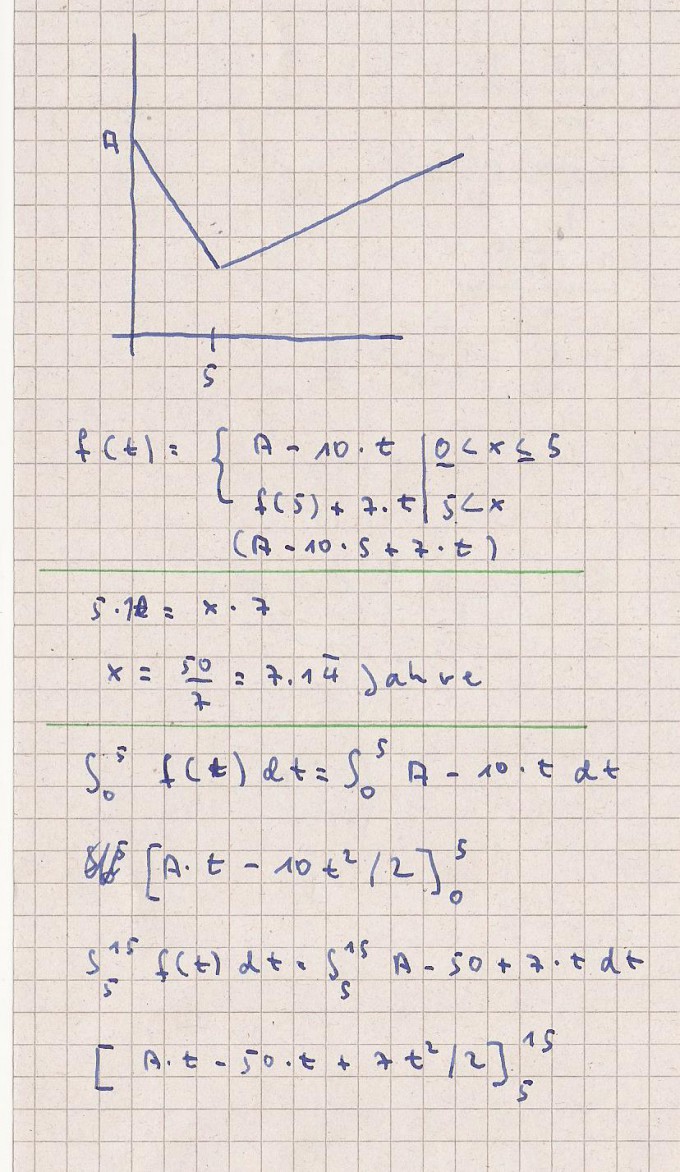 A
5
f(t) = { A - 10 · t | 0 < x ≤ 5
f(5) + 7 · t | 5 < x
(A - 10 · 5 + 7 · t)
= x · 7
x = 50/7 = 7.14 Jahre
∫₀⁵ f(t) dt = ∫₀⁵ A - 10 · t dt
[A · t - 10 t²/2]₀⁵
∫₅¹⁵ f(t) dt = ∫₅¹⁵ A - 50 + 7 · t dt
[A · t - 50 · t + 7 t²/2]₅¹⁵